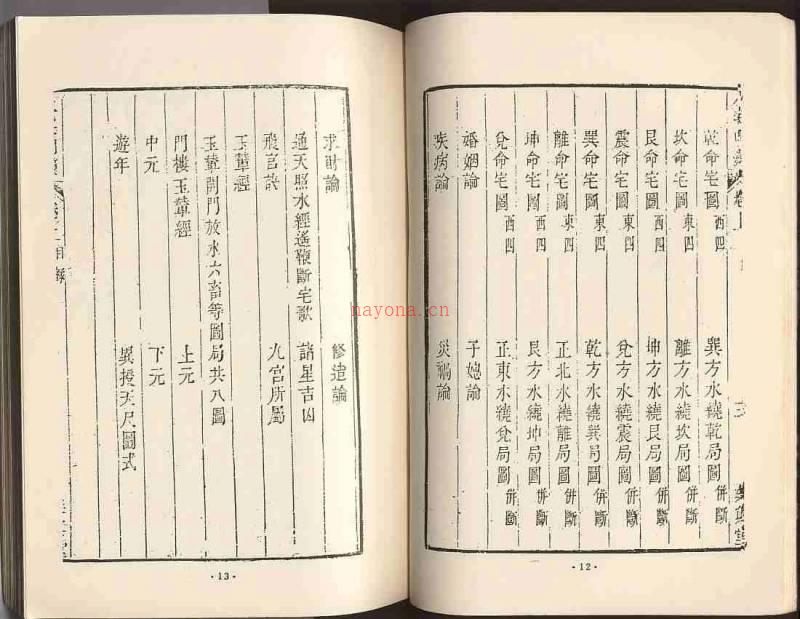 乾命宅圖 西四 巽方水繞乾局圖 併斷
坎命宅圖 東四 離方水繞坎局圖 併斷
艮命宅圖 西四 坤方水繞艮局圖 併斷
震命宅圖 東四 兌方水繞震局圖 併斷
巽命宅圖 東四 乾方水繞巽局圖 併斷
離命宅圖 東四 正北水繞離局圖 併斷
坤命宅圖 西四 艮方水繞坤局圖 併斷
兌命宅圖 西四 正東水繞兌局圖 併斷
婚姻論 子媳論
疾病論 災禍論
·12·
求財論 修造論
通天照水經遙鞭斷宅歌 諸星吉凶
飛宮訣 九宮所屬
玉輦經
玉輦開門放水六畜等圖局共八圖
門樓玉輦經 上元
中元 下元
遊年 異授天尺圖式
目錄
·13·
nayona.cn